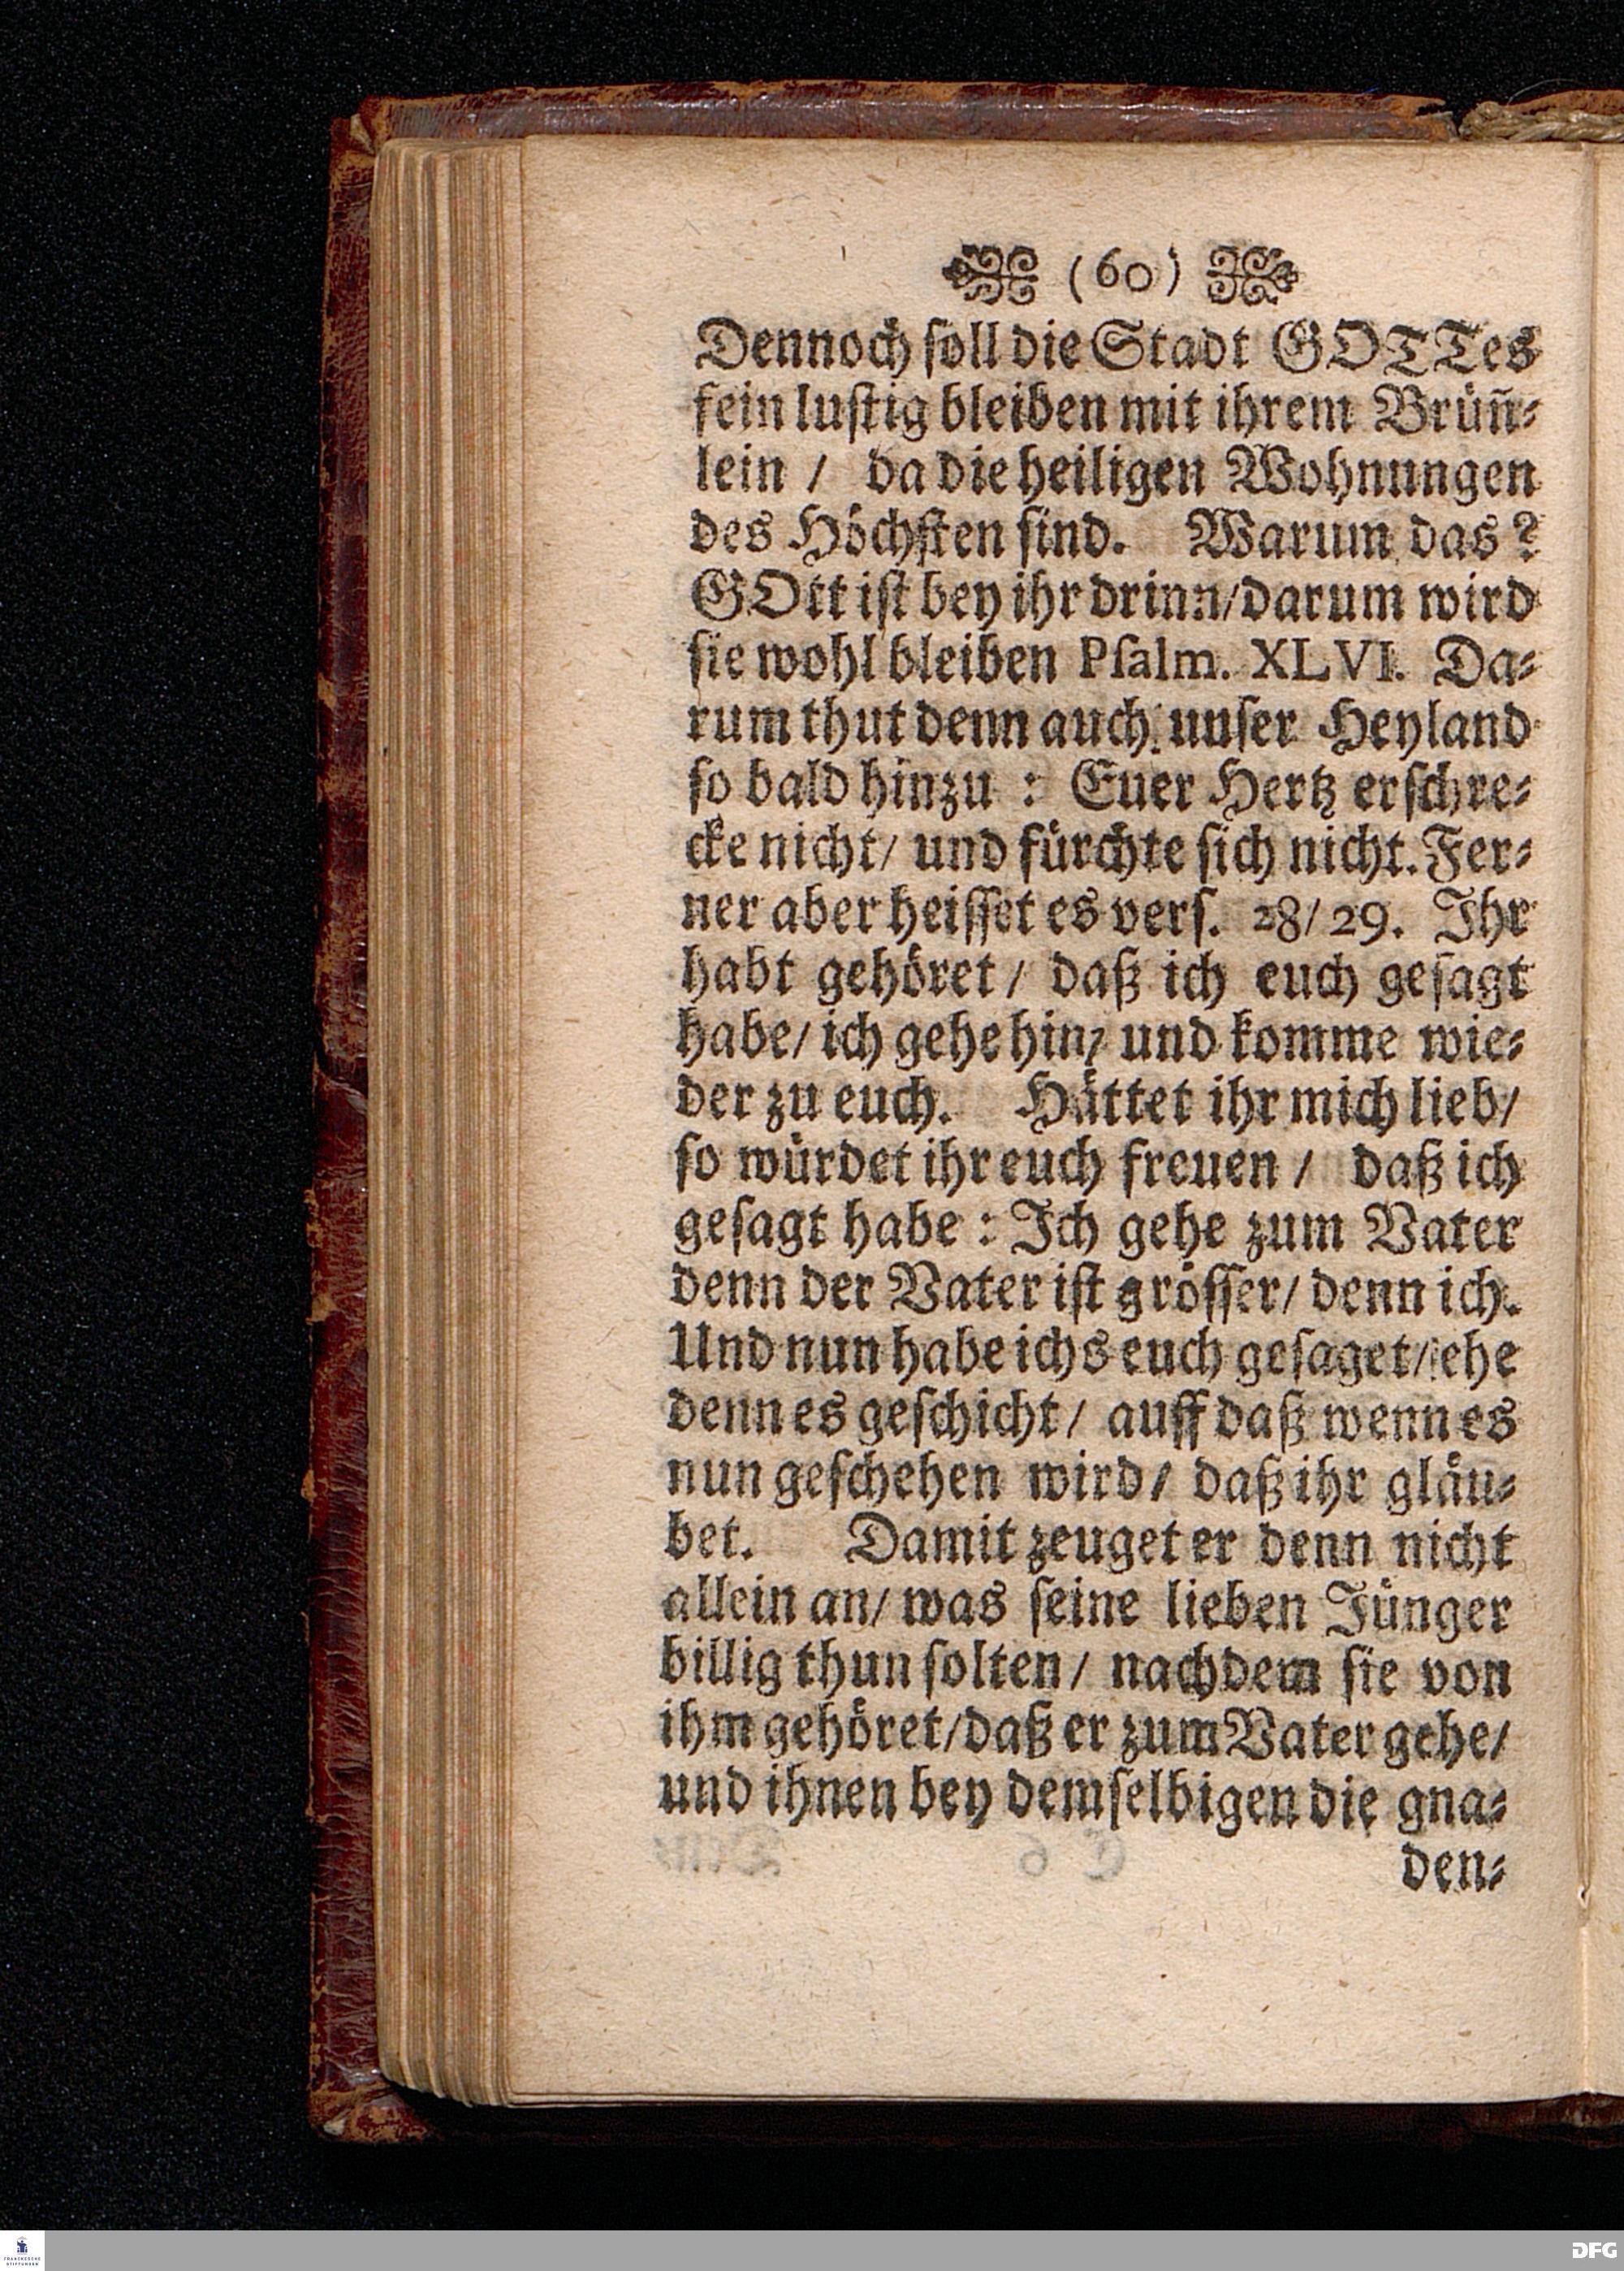 (60)
Dennoch ſoll die Stadt GOTTes
fein luſtig bleiben mit ihrem Brün̄⸗
lein / da die heiligen Wohnungen
des Höchſten ſind. Warum das?
GOtt iſt bey ihr drinn/darum wird
ſie wohl bleiben Pſalm. XLVI. Da⸗
rum thut denn auch unſer Heyland
ſo bald hinzu : Euer Hertz erſchre⸗
cke nicht/ und fürchte ſich nicht. Fer⸗
ner aber heiſſet es verſ. 28/29. Ihr
habt gehöret / daß ich euch geſagt
habe/ ich gehe hin/ und komme wie⸗
der zu euch. Hättet ihr mich lieb/
ſo würdet ihr euch freuen / daß ich
geſagt habe : Ich gehe zum Vater
denn der Vater iſt gröſſer/ denn ich.
Und nun habe ichs euch geſaget/ ehe
denn es geſchicht/ auff daß wenn es
nun geſchehen wird/ daß ihr gläu⸗
bet. Damit zeuget er denn nicht
allein an/ was ſeine lieben Jünger
billig thun ſolten/ nachdem ſie von
ihm gehöret/daß er zum Vater gehe/
und ihnen bey demſelbigen die gna⸗
den⸗
FRANCKESCHE
STIFTUNGEN
DFG